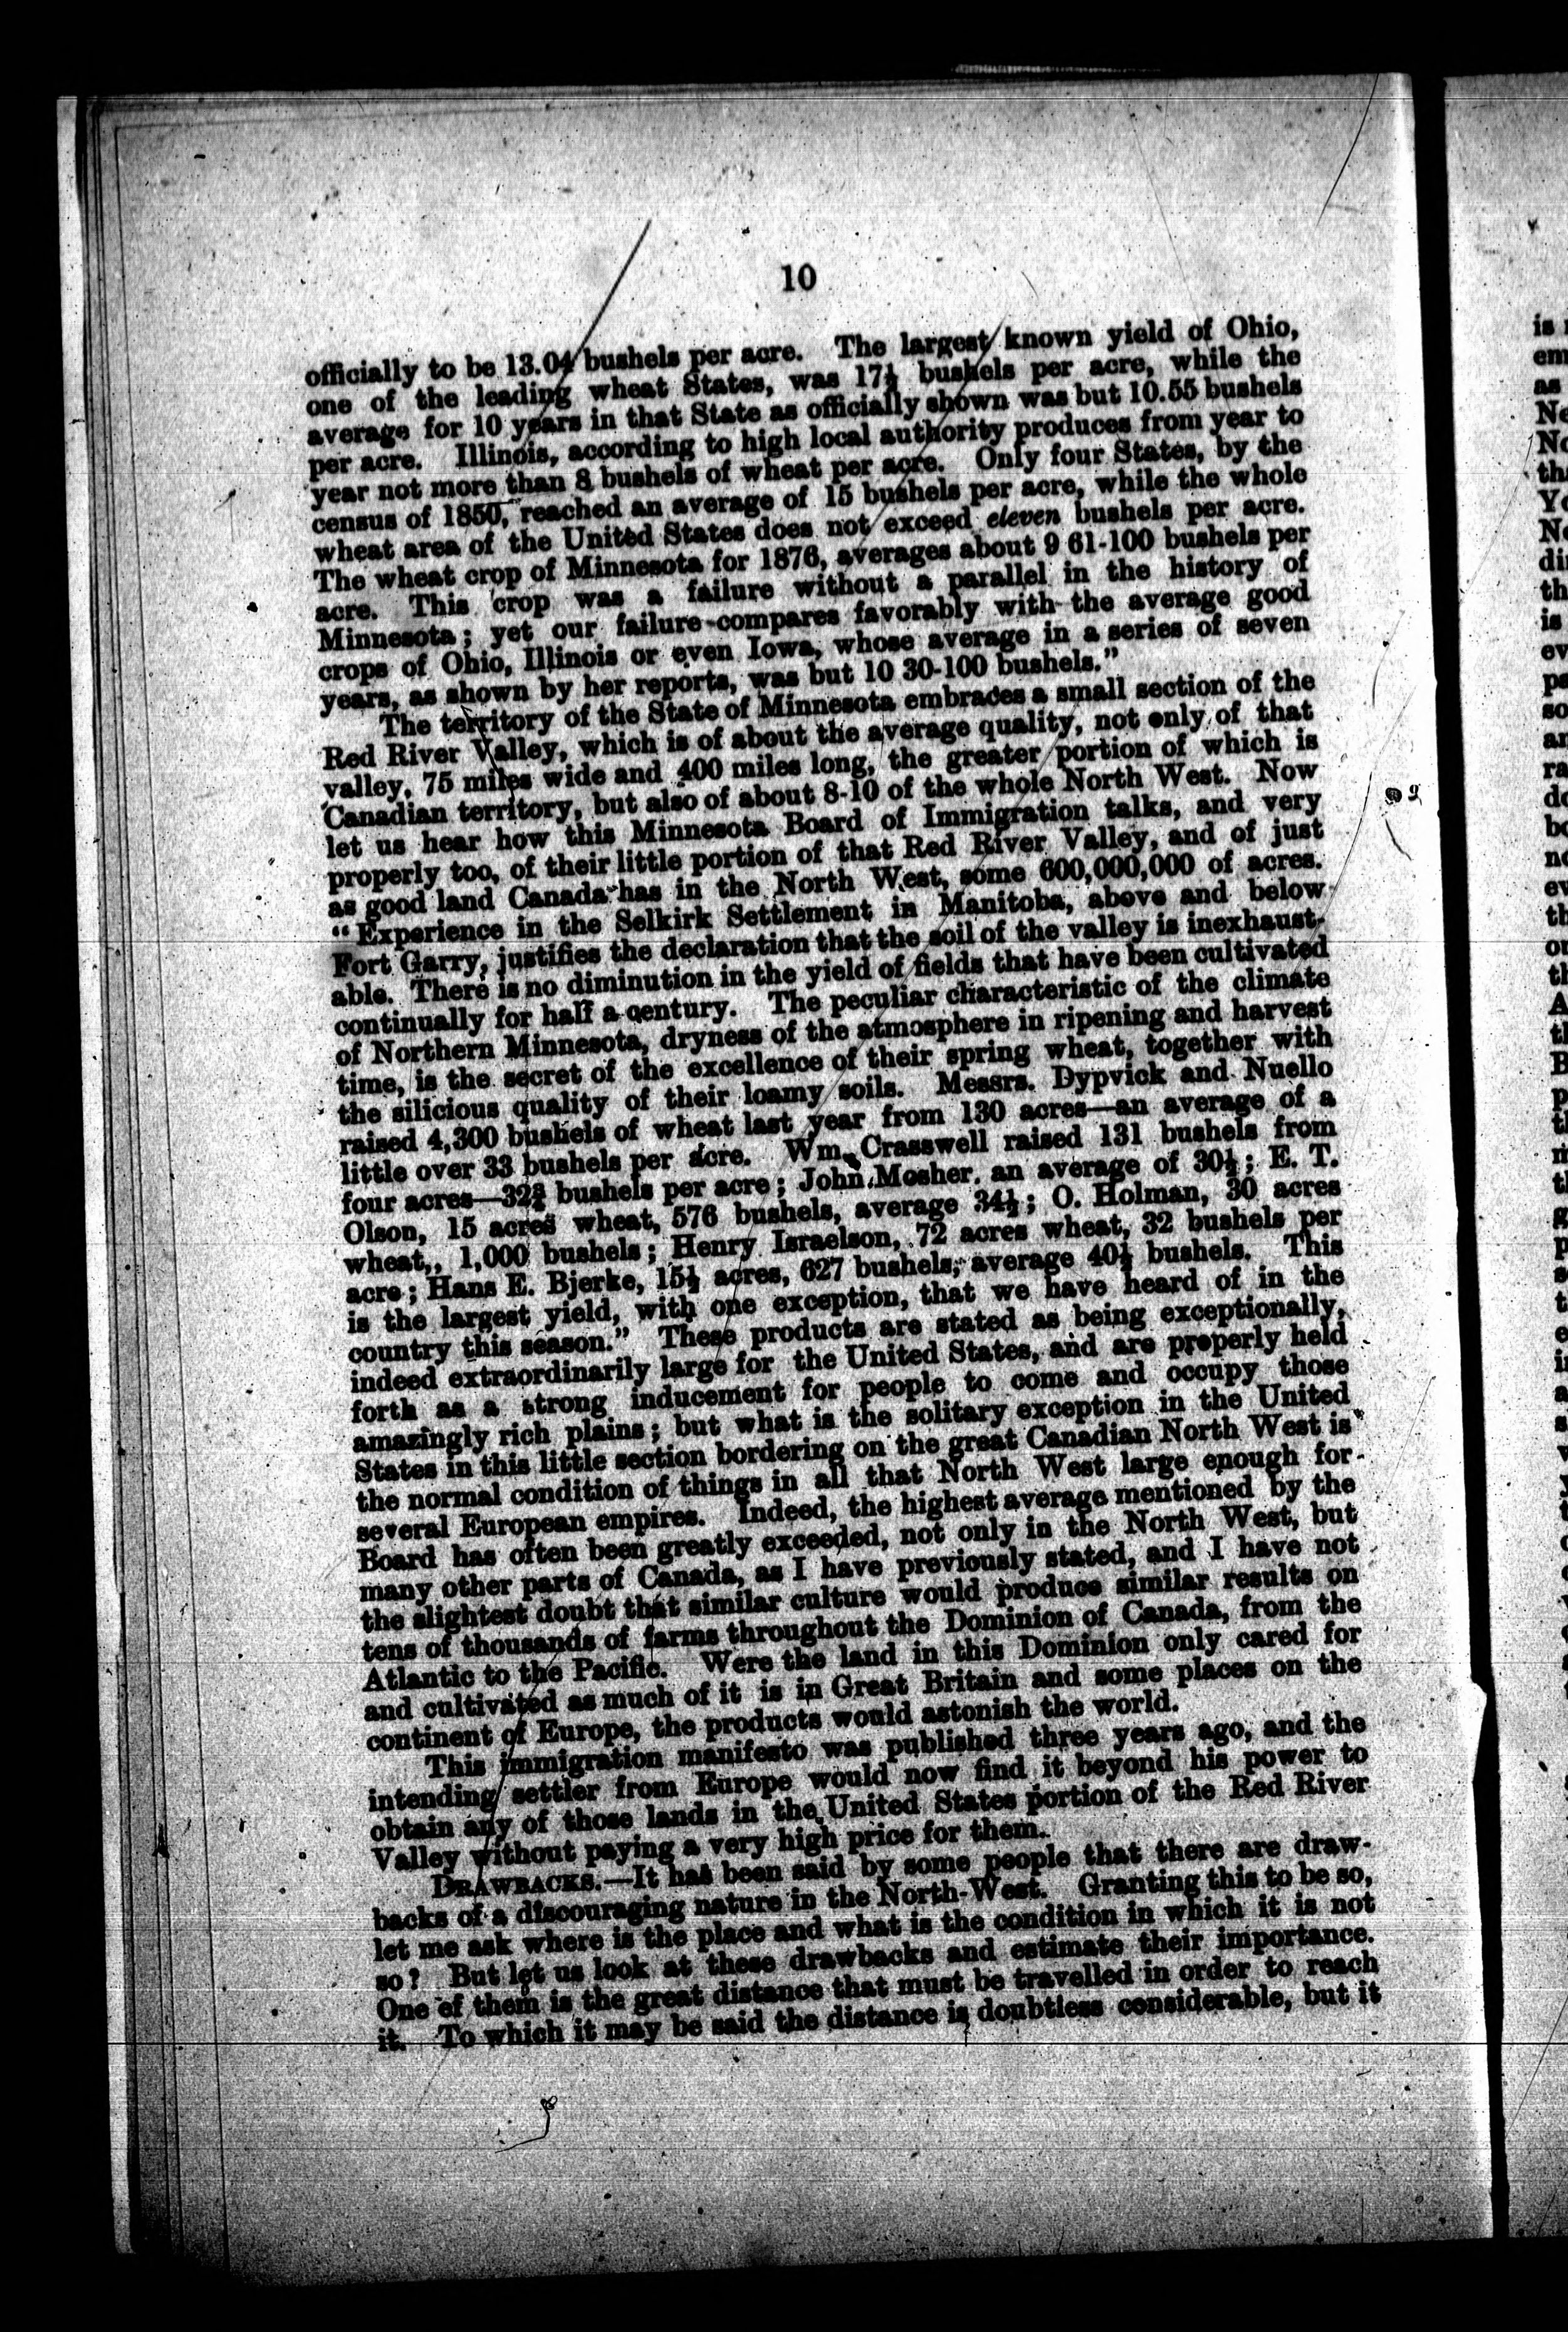 10
officially to be 13.04 bushels per acre. The largest known yield of Ohio,
one of the leading wheat States, was 17½ bushels per acre, while the
average for 10 years in that State as officially shown was but 10.55 bushels
per acre. Illinois, according to high local authority produces from year to
year not more than 8 bushels of wheat per acre. Only four States, by the
census of 1850, reached an average of 15 bushels per acre, while the whole
wheat area of the United States does not exceed eleven bushels per acre.
The wheat crop of Minnesota for 1876, averages about 9 61-100 bushels per
acre. This crop was a failure without a parallel in the history of
Minnesota; yet our failure compares favorably with the average good
crops of Ohio, Illinois or even Iowa, whose average in a series of seven
years, as shown by her reports, was but 10 30-100 bushels."
The territory of the State of Minnesota embraces a small section of the
Red River Valley, which is of about the average quality, not only of that
valley, 75 miles wide and 400 miles long, the greater portion of which is
Canadian territory, but also of about 8-10 of the whole North West. Now
let us hear how this Minnesota Board of Immigration talks, and very
properly too, of their little portion of that Red River Valley, and of just
as good land Canada has in the North West, some 600,000,000 of acres.
"Experience in the Selkirk Settlement in Manitoba, above and below
Fort Garry, justifies the declaration that the soil of the valley is inexhaust-
able. There is no diminution in the yield of fields that have been cultivated
continually for half a century. The peculiar characteristic of the climate
of Northern Minnesota, dryness of the atmosphere in ripening and harvest
time, is the secret of the excellence of their spring wheat, together with
the silicious quality of their loamy soils. Messrs. Dypvick and Nuello
raised 4,300 bushels of wheat last year from 130 acres—an average of a
little over 33 bushels per acre. Wm. Crasswell raised 131 bushels from
four acres—32¾ bushels per acre; John Mosher, an average of 30½; E. T.
Olson, 15 acres wheat, 576 bushels, average 34½; O. Holman, 30 acres
wheat,, 1,000 bushels; Henry Israelson, 72 acres wheat, 32 bushels per
acre; Hans E. Bjerke, 15½ acres, 627 bushels, average 40½ bushels. This
is the largest yield, with one exception, that we have heard of in the
country this season." These products are stated as being exceptionally,
indeed extraordinarily large for the United States, and are properly held
forth as a strong inducement for people to come and occupy those
amazingly rich plains; but what is the solitary exception in the United
States in this little section bordering on the great Canadian North West is
the normal condition of things in all that North West large enough for
several European empires. Indeed, the highest average mentioned by the
Board has often been greatly exceeded, not only in the North West, but
many other parts of Canada, as I have previously stated, and I have not
the slightest doubt that similar culture would produce similar results on
tens of thousands of farms throughout the Dominion of Canada, from the
Atlantic to the Pacific. Were the land in this Dominion only cared for
and cultivated as much of it is in Great Britain and some places on the
continent of Europe, the products would astonish the world.
This immigration manifesto was published three years ago, and the
intending settler from Europe would now find it beyond his power to
obtain any of those lands in the United States portion of the Red River
Valley without paying a very high price for them.
DRAWBACKS.—It has been said by some people that there are draw-
backs of a discouraging nature in the North-West. Granting this to be so,
let me ask where is the place and what is the condition in which it is not
so? But let us look at these drawbacks and estimate their importance.
One of them is the great distance that must be travelled in order to reach
it. To which it may be said the distance is doubtless considerable, but it